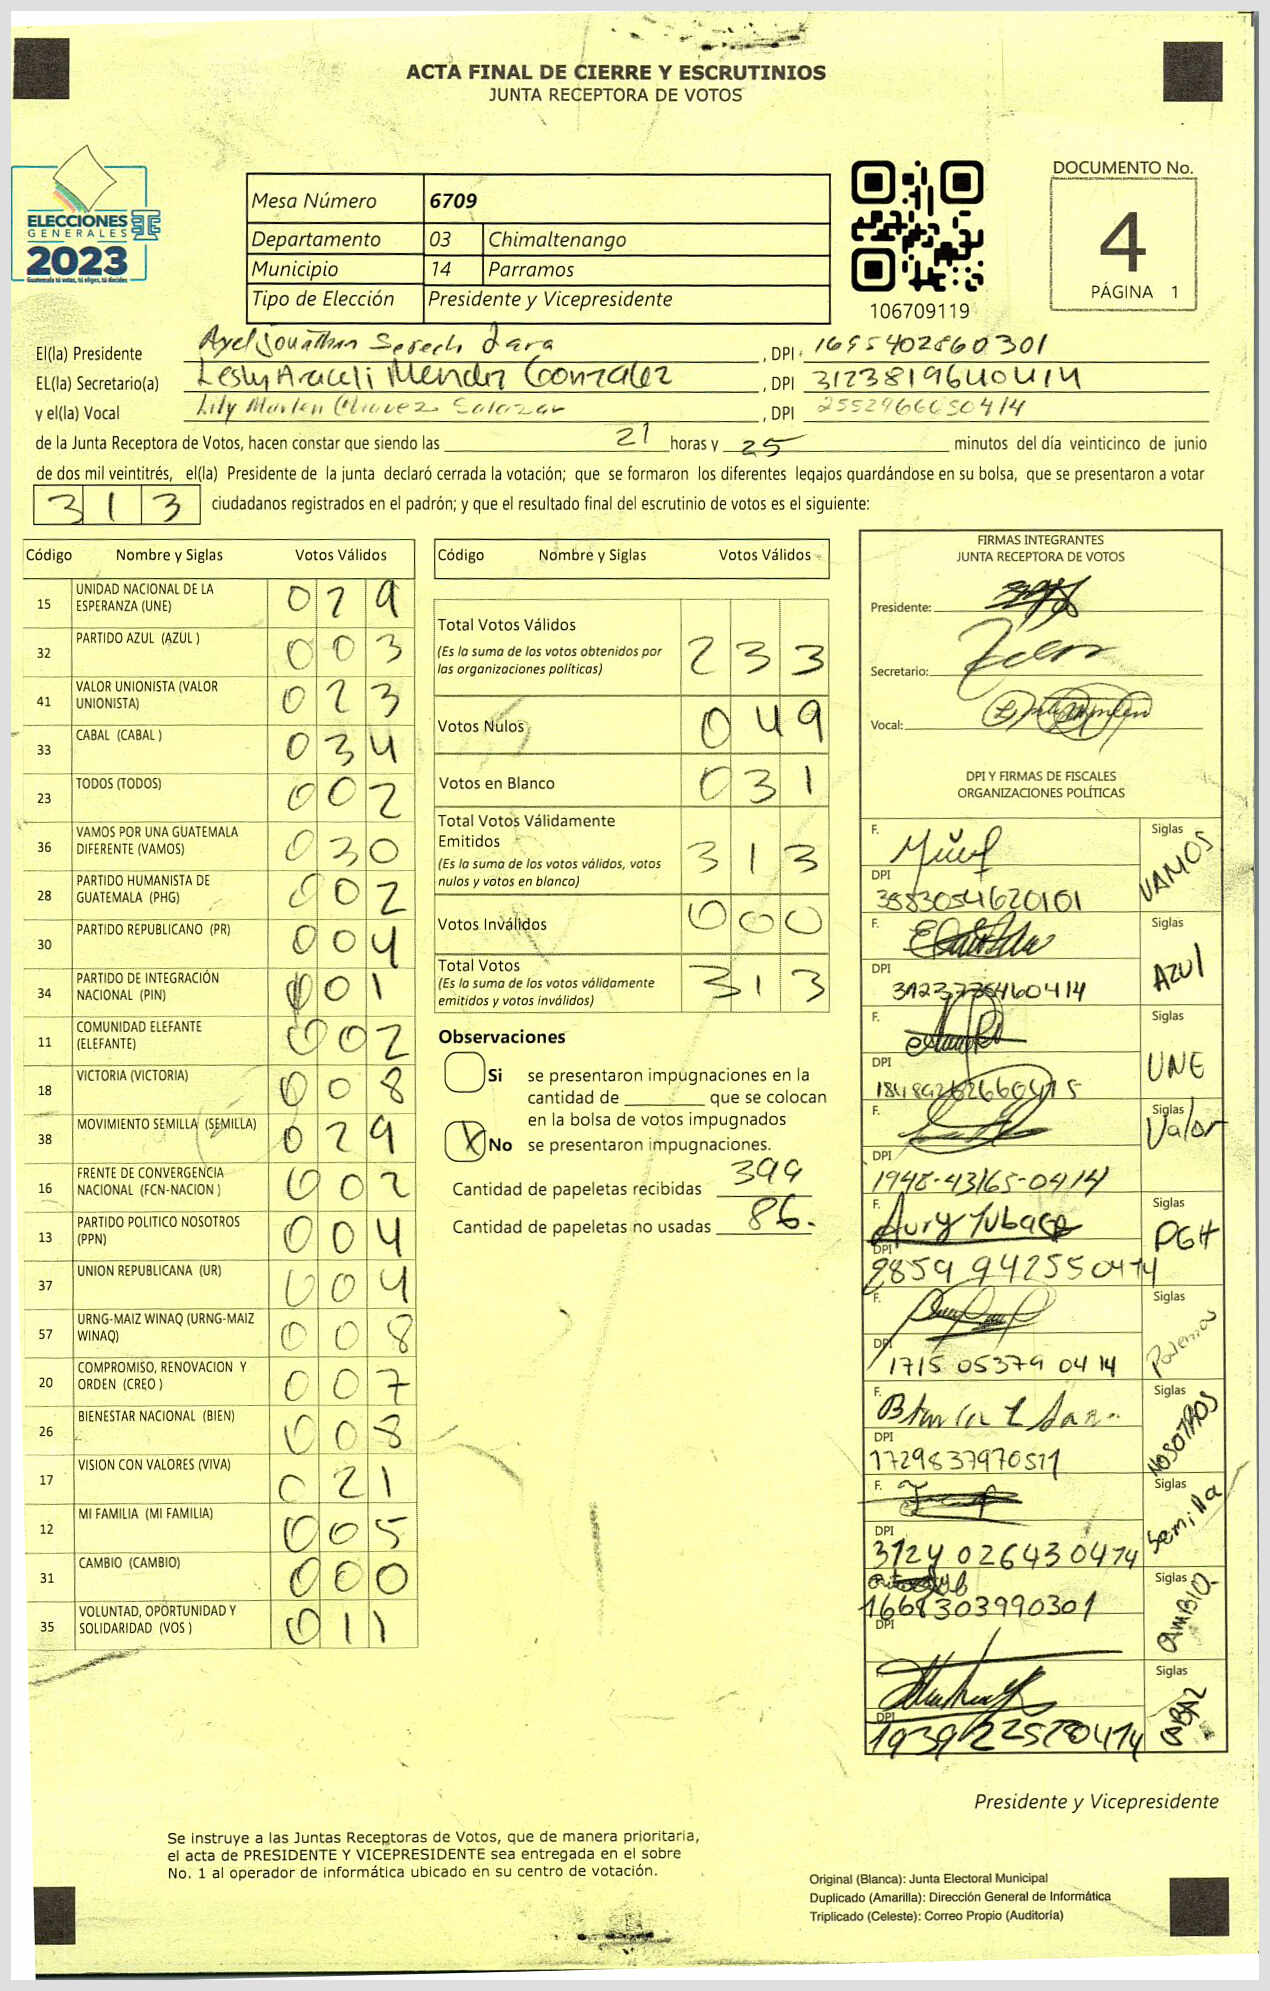 ACTA FINAL DE CIERRE Y ESCRUTINIOS
JUNTA RECEPTORA DE VOTOS
ELECCIONES
GENERALES
2023
Guatemala tú votas, tú eliges, tú decides
Mesa Número 6709
Departamento 03 Chimaltenango
Municipio 14 Parramos
Tipo de Elección Presidente y Vicepresidente
106709119
DOCUMENTO No.
4
PÁGINA 1
El(la) Presidente Axel Jonathan Serech Jara , DPI 1695402860301
EL(la) Secretario(a) Lesly Araceli Mendez Gonzalez , DPI 3123819640414
y el(la) Vocal Lily Marlen Chavez Salazar , DPI 2552966650414
de la Junta Receptora de Votos, hacen constar que siendo las 21 horas y 25 minutos del día veinticinco de junio
de dos mil veintitrés, el(la) Presidente de la junta declaró cerrada la votación; que se formaron los diferentes legajos guardándose en su bolsa, que se presentaron a votar
313 ciudadanos registrados en el padrón; y que el resultado final del escrutinio de votos es el siguiente:
Código Nombre y Siglas Votos Válidos
15 UNIDAD NACIONAL DE LA ESPERANZA (UNE) 029
32 PARTIDO AZUL (AZUL ) 003
41 VALOR UNIONISTA (VALOR UNIONISTA) 023
33 CABAL (CABAL ) 034
23 TODOS (TODOS) 002
36 VAMOS POR UNA GUATEMALA DIFERENTE (VAMOS) 030
28 PARTIDO HUMANISTA DE GUATEMALA (PHG) 002
30 PARTIDO REPUBLICANO (PR) 004
34 PARTIDO DE INTEGRACIÓN NACIONAL (PIN) 001
11 COMUNIDAD ELEFANTE (ELEFANTE) 002
18 VICTORIA (VICTORIA) 008
38 MOVIMIENTO SEMILLA (SEMILLA) 029
16 FRENTE DE CONVERGENCIA NACIONAL (FCN-NACION ) 002
13 PARTIDO POLITICO NOSOTROS (PPN) 004
37 UNION REPUBLICANA (UR) 004
57 URNG-MAIZ WINAQ (URNG-MAIZ WINAQ) 008
20 COMPROMISO, RENOVACION Y ORDEN (CREO ) 007
26 BIENESTAR NACIONAL (BIEN) 008
17 VISION CON VALORES (VIVA) 021
12 MI FAMILIA (MI FAMILIA) 005
31 CAMBIO (CAMBIO) 000
35 VOLUNTAD, OPORTUNIDAD Y SOLIDARIDAD (VOS ) 011
Código Nombre y Siglas Votos Válidos
Total Votos Válidos
(Es la suma de los votos obtenidos por
las organizaciones políticas) 233
Votos Nulos 049
Votos en Blanco 031
Total Votos Válidamente
Emitidos
(Es la suma de los votos válidos, votos
nulos y votos en blanco) 313
Votos Inválidos 000
Total Votos
(Es la suma de los votos válidamente
emitidos y votos inválidos) 313
Observaciones
Si se presentaron impugnaciones en la
cantidad de ________ que se colocan
en la bolsa de votos impugnados
X No se presentaron impugnaciones.
Cantidad de papeletas recibidas 399
Cantidad de papeletas no usadas 86.
FIRMAS INTEGRANTES
JUNTA RECEPTORA DE VOTOS
Presidente:
Secretario:
Vocal:
DPI Y FIRMAS DE FISCALES
ORGANIZACIONES POLÍTICAS
F. Siglas VAMOS
DPI 3583054620101
F. Siglas AZUL
DPI
F. Siglas UNE
DPI
F. Siglas Valor
DPI 1948-43165-0414
F. Siglas PGH
DPI 2859 942550414
F. Siglas Podemos
DPI 1715 05379 0414
F. Siglas NOSOTROS
DPI 1729837970511
F. Siglas Semilla
DPI 3124 026430414
Siglas CAMBIO
1668303990301
DPI
F. Siglas
DPI 1939225280414
Presidente y Vicepresidente
Se instruye a las Juntas Receptoras de Votos, que de manera prioritaria,
el acta de PRESIDENTE Y VICEPRESIDENTE sea entregada en el sobre
No. 1 al operador de informática ubicado en su centro de votación.
Original (Blanca): Junta Electoral Municipal
Duplicado (Amarilla): Dirección General de Informática
Triplicado (Celeste): Correo Propio (Auditoría)